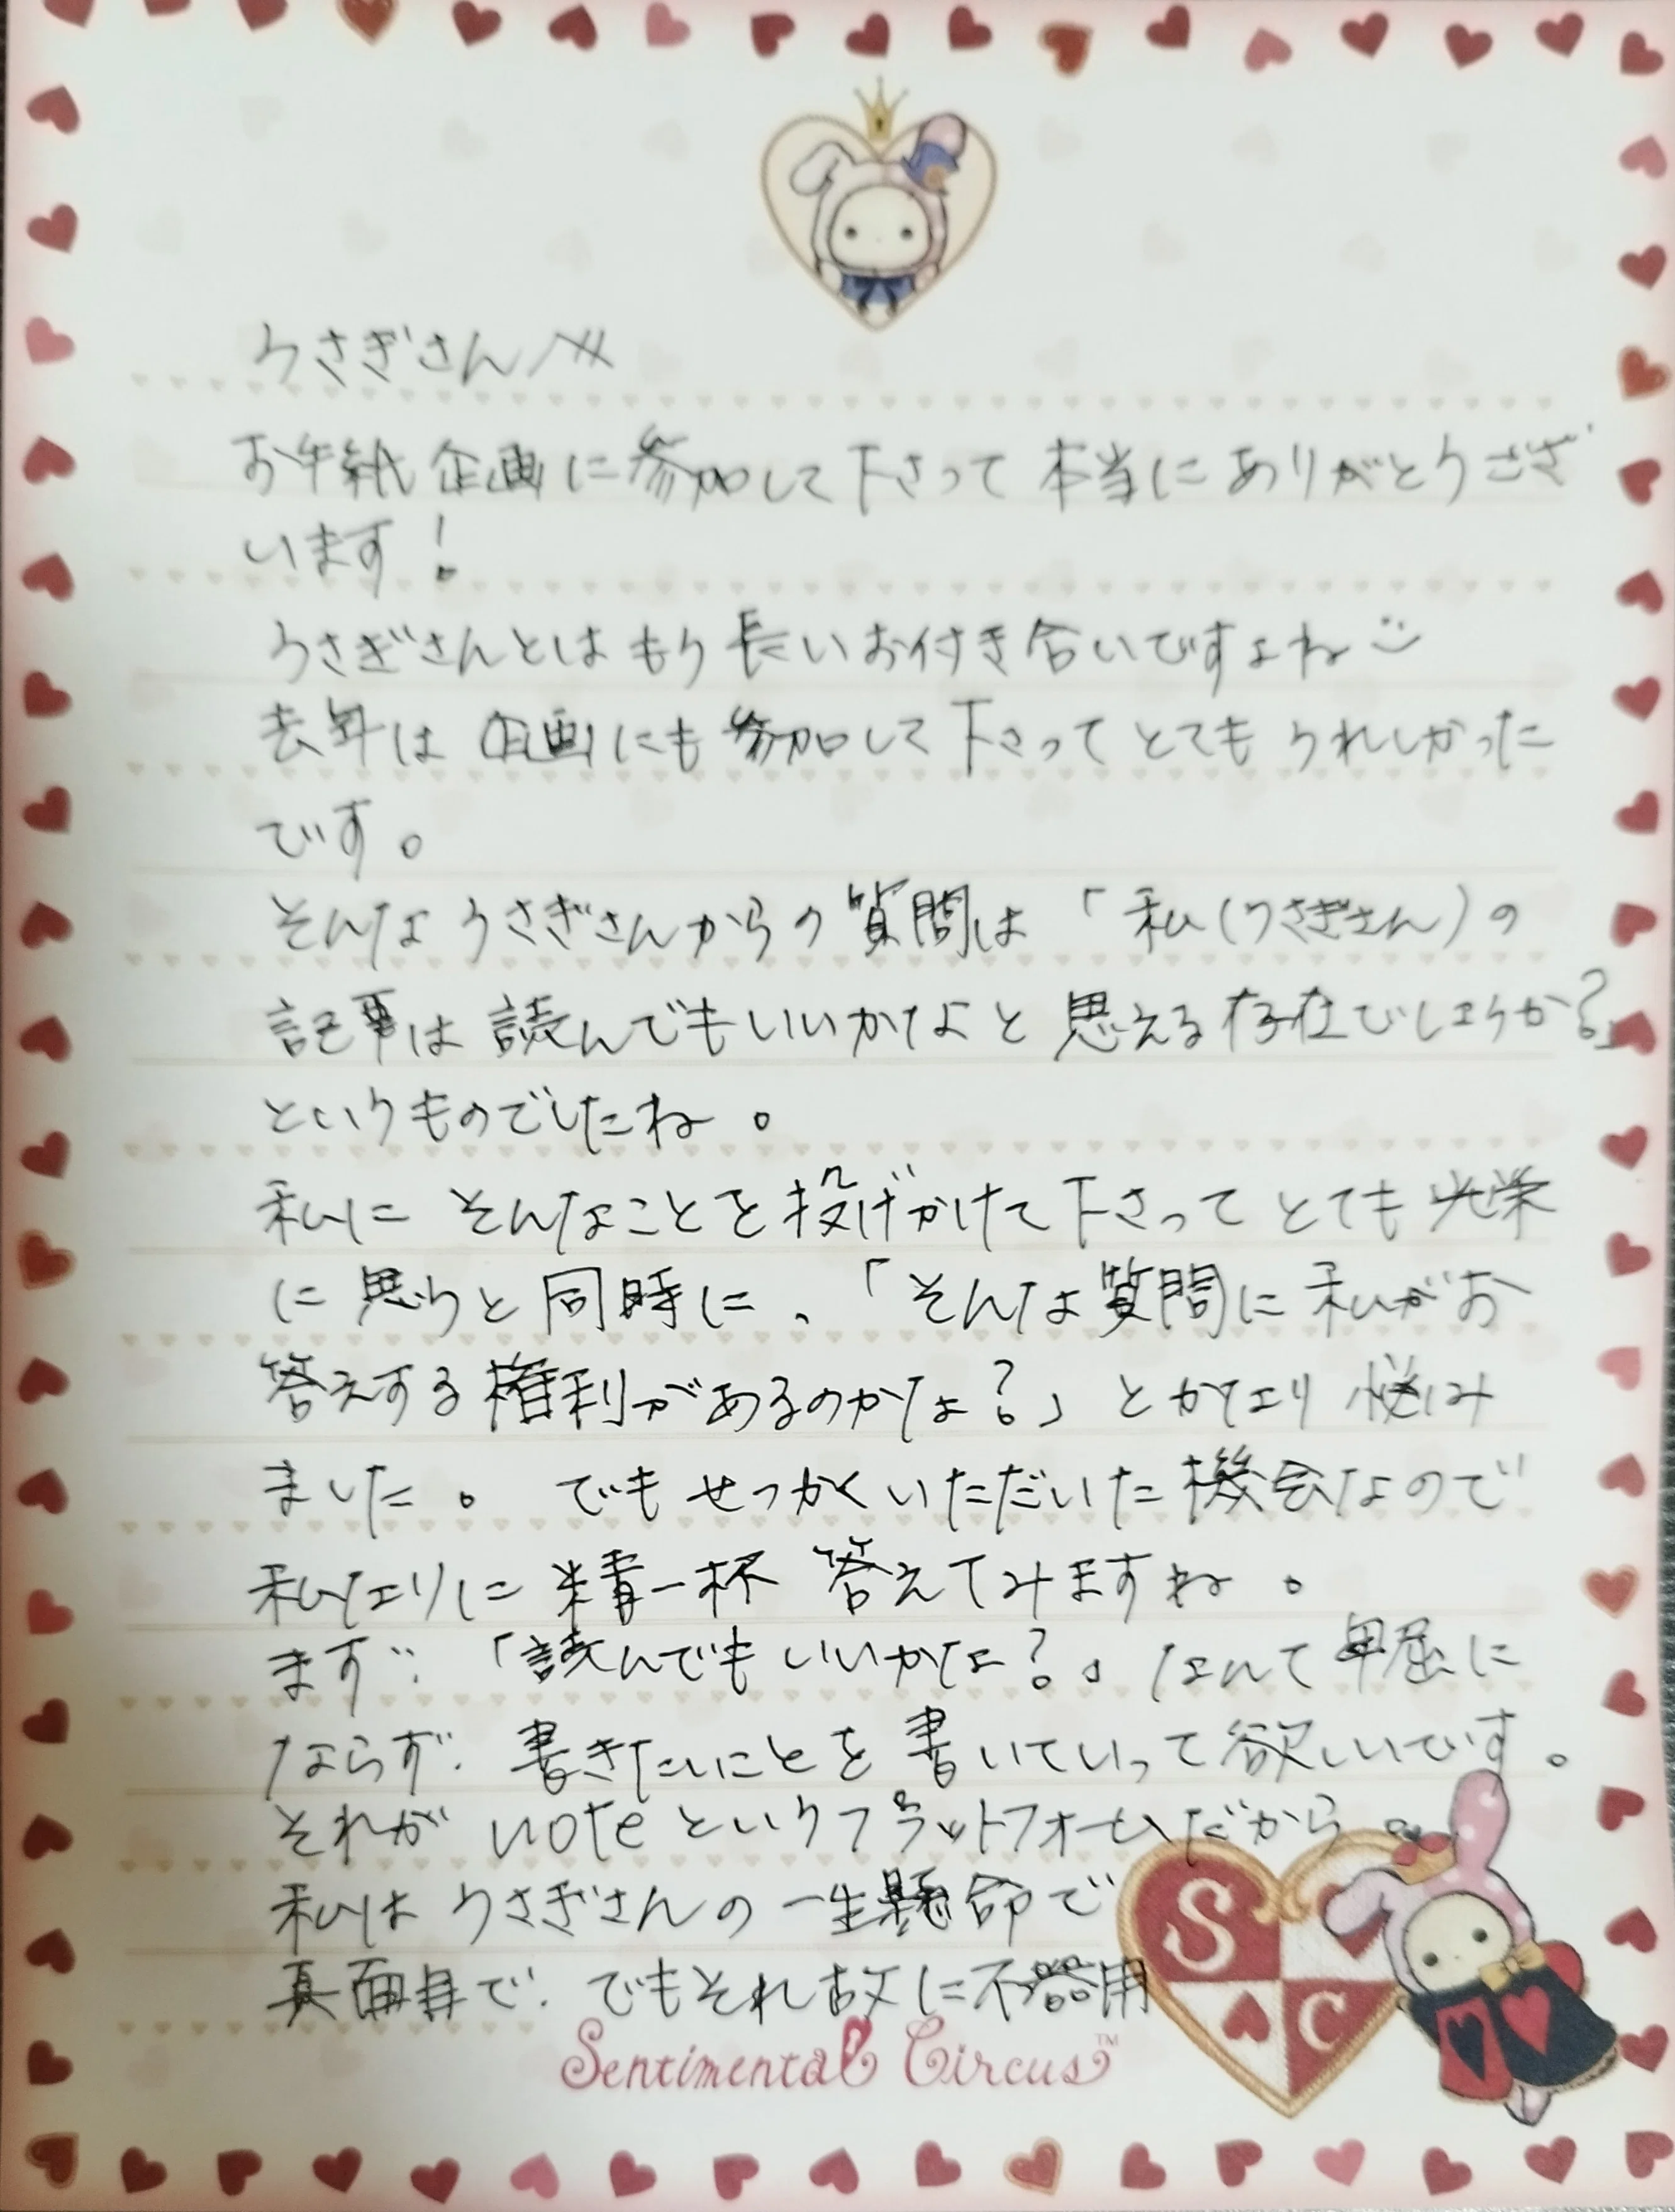 うさぎさんへ
お手紙企画に参加して下さって本当にありがとうござ
います!
うさぎさんとはもう長いお付き合いですよね
去年は企画にも参加して下さってとてもうれしかった
です。
そんなうさぎさんからの質問は「私(うさぎさん)の
記事は読んでもいいかなと思える存在でしょうか?」
というものでしたね。
私にそんなことを投げかけて下さってとても光栄
に思うと同時に、「そんな質問に私がお
答えする権利があるのかな?」とかなり悩み
ました。でもせっかくいただいた機会なので
私なりに精一杯答えてみますね。
まず、「読んでもいいかな?」なんて卑屈に
ならず、書きたいことを書いていって欲しいです。
それがnoteというプラットフォームだから。
私はうさぎさんの一生懸命で
真面目で、でもそれ故に不器用
S
C
Sentimental Circus™